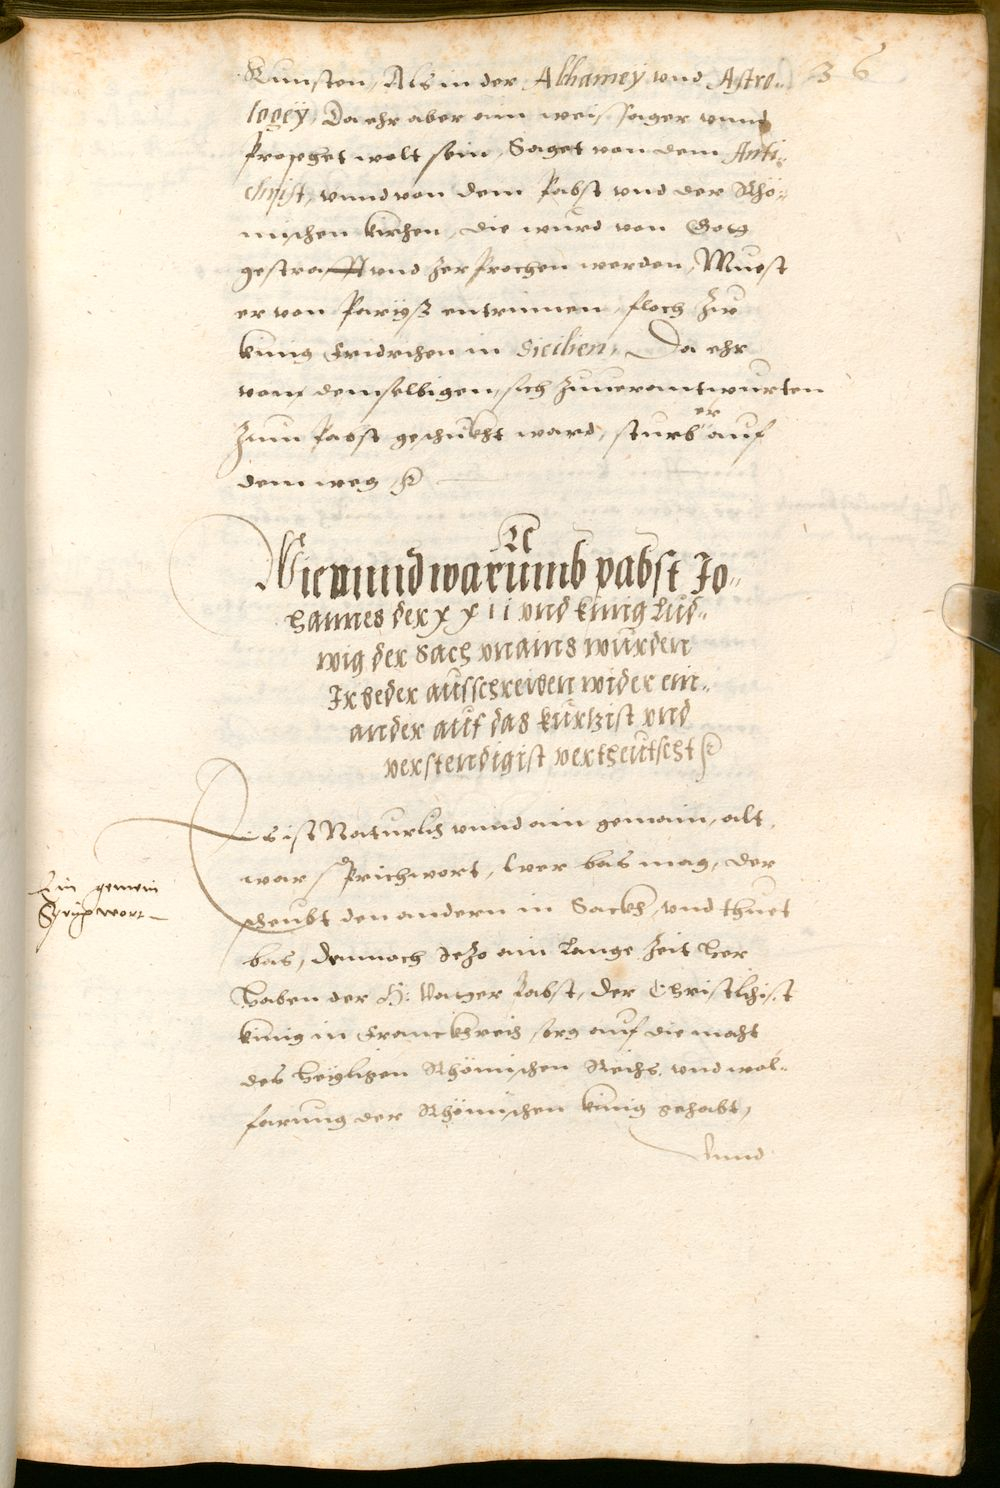 36
Kunsten, Als in der Alhamey vnd Astro=
logey, Da ehr aber ain weissager vnnd
Prophet wolt sein, Saget von dem Anti=
christ, vnnd von dem Pabst vnd der Rhö=
mischen kirchen, die wurd von Gott
gestrafft vnd zerprochen werden, Muest
er von Paryß entrinnen, floch Zu
kinig Fridrichen in Sicilien, Da ehr
vom demselbigen, sich zuuerantwurten
Zum Pabst geschickht ward, sturb er auf
dem weg
Wie vnnd warumb pabst Jo=
hannes der XXII vnd kinig Lud=
wig der Sach vnains wurden
Ir beder ausschreiben wider ein=
ander auf das kurtzist vnd
verstendigist vertheutscht
Es ist Naturlich vnnd ain gemain, alt,
war Sprichwort, Wer bas mag, der
scheubt den andern in Sackh, vnd thuet
bas, demnach Jezo ain Lange Zeit her
haben der H: Vatter Pabst, der Christlichist
kinig in Franckhreich sorg auf die macht
des heyligen Rhömischen Reichs, vnd wol=
farung der Rhömischen kinig gehabt,
Vnnd
Ein gemein
Sprichwort